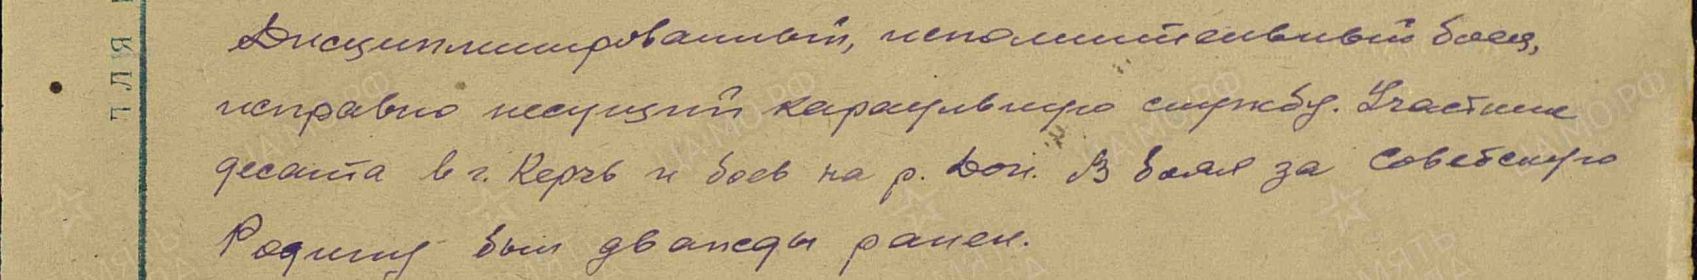 Дисциплинированный, исполнительный боец,
исправно несущий караульную службу. Участник
десанта в г. Керчь и боев на р. Дон. В боях за Советскую
Родину был дважды ранен.
ДЛЯ
ЦАМО.РФ
ПАМЯТЬ